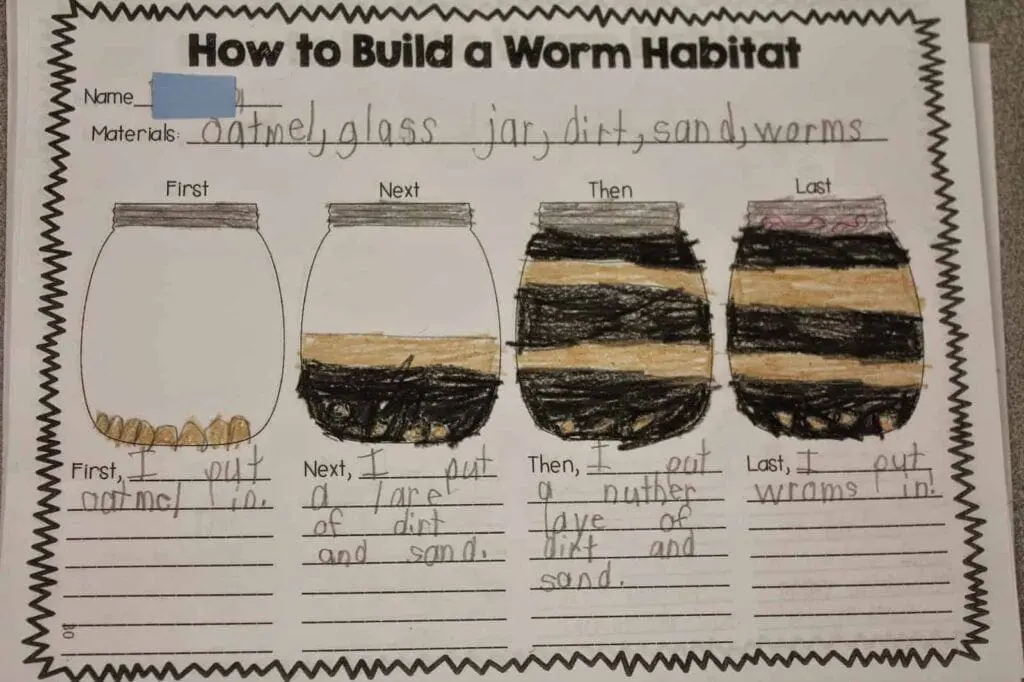 How to Build a Worm Habitat
Name
Materials: oatmel, glass jar, dirt, sand, worms
First
Next
Then
Last
First, I put
oatmel in.
Next, I put
a lare
of dirt
and sand.
Then, I put
a nuther
laye of
dirt and
sand.
Last, I put
wroms in!